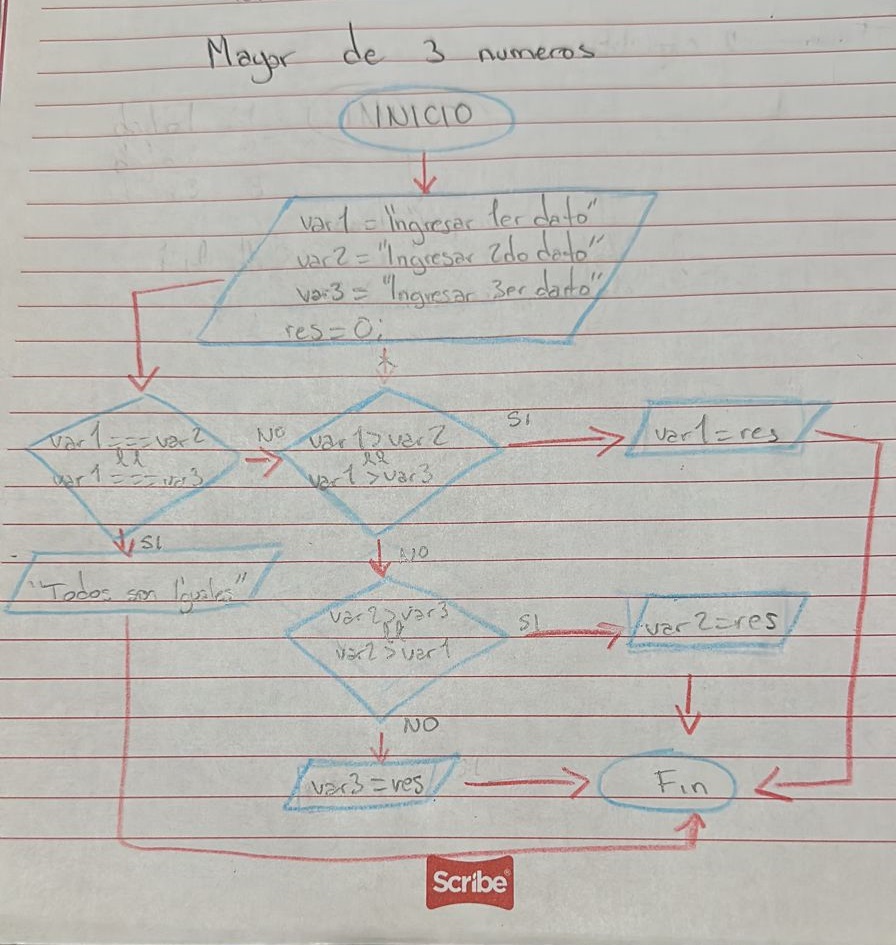 Mayor de 3 numeros
INICIO
var1 = "Ingresar 1er dato"
var2 = "Ingresar 2do dato"
var3 = "Ingresar 3er dato"
res = 0;
var1 === var2
&&
var1 === var3
NO
var1 > var2
&&
var1 > var3
SI
var1 = res
SI
"Todos son Iguales"
NO
var2 > var3
&&
var2 > var1
SI
var2 = res
NO
var3 = res
Fin
Scribe